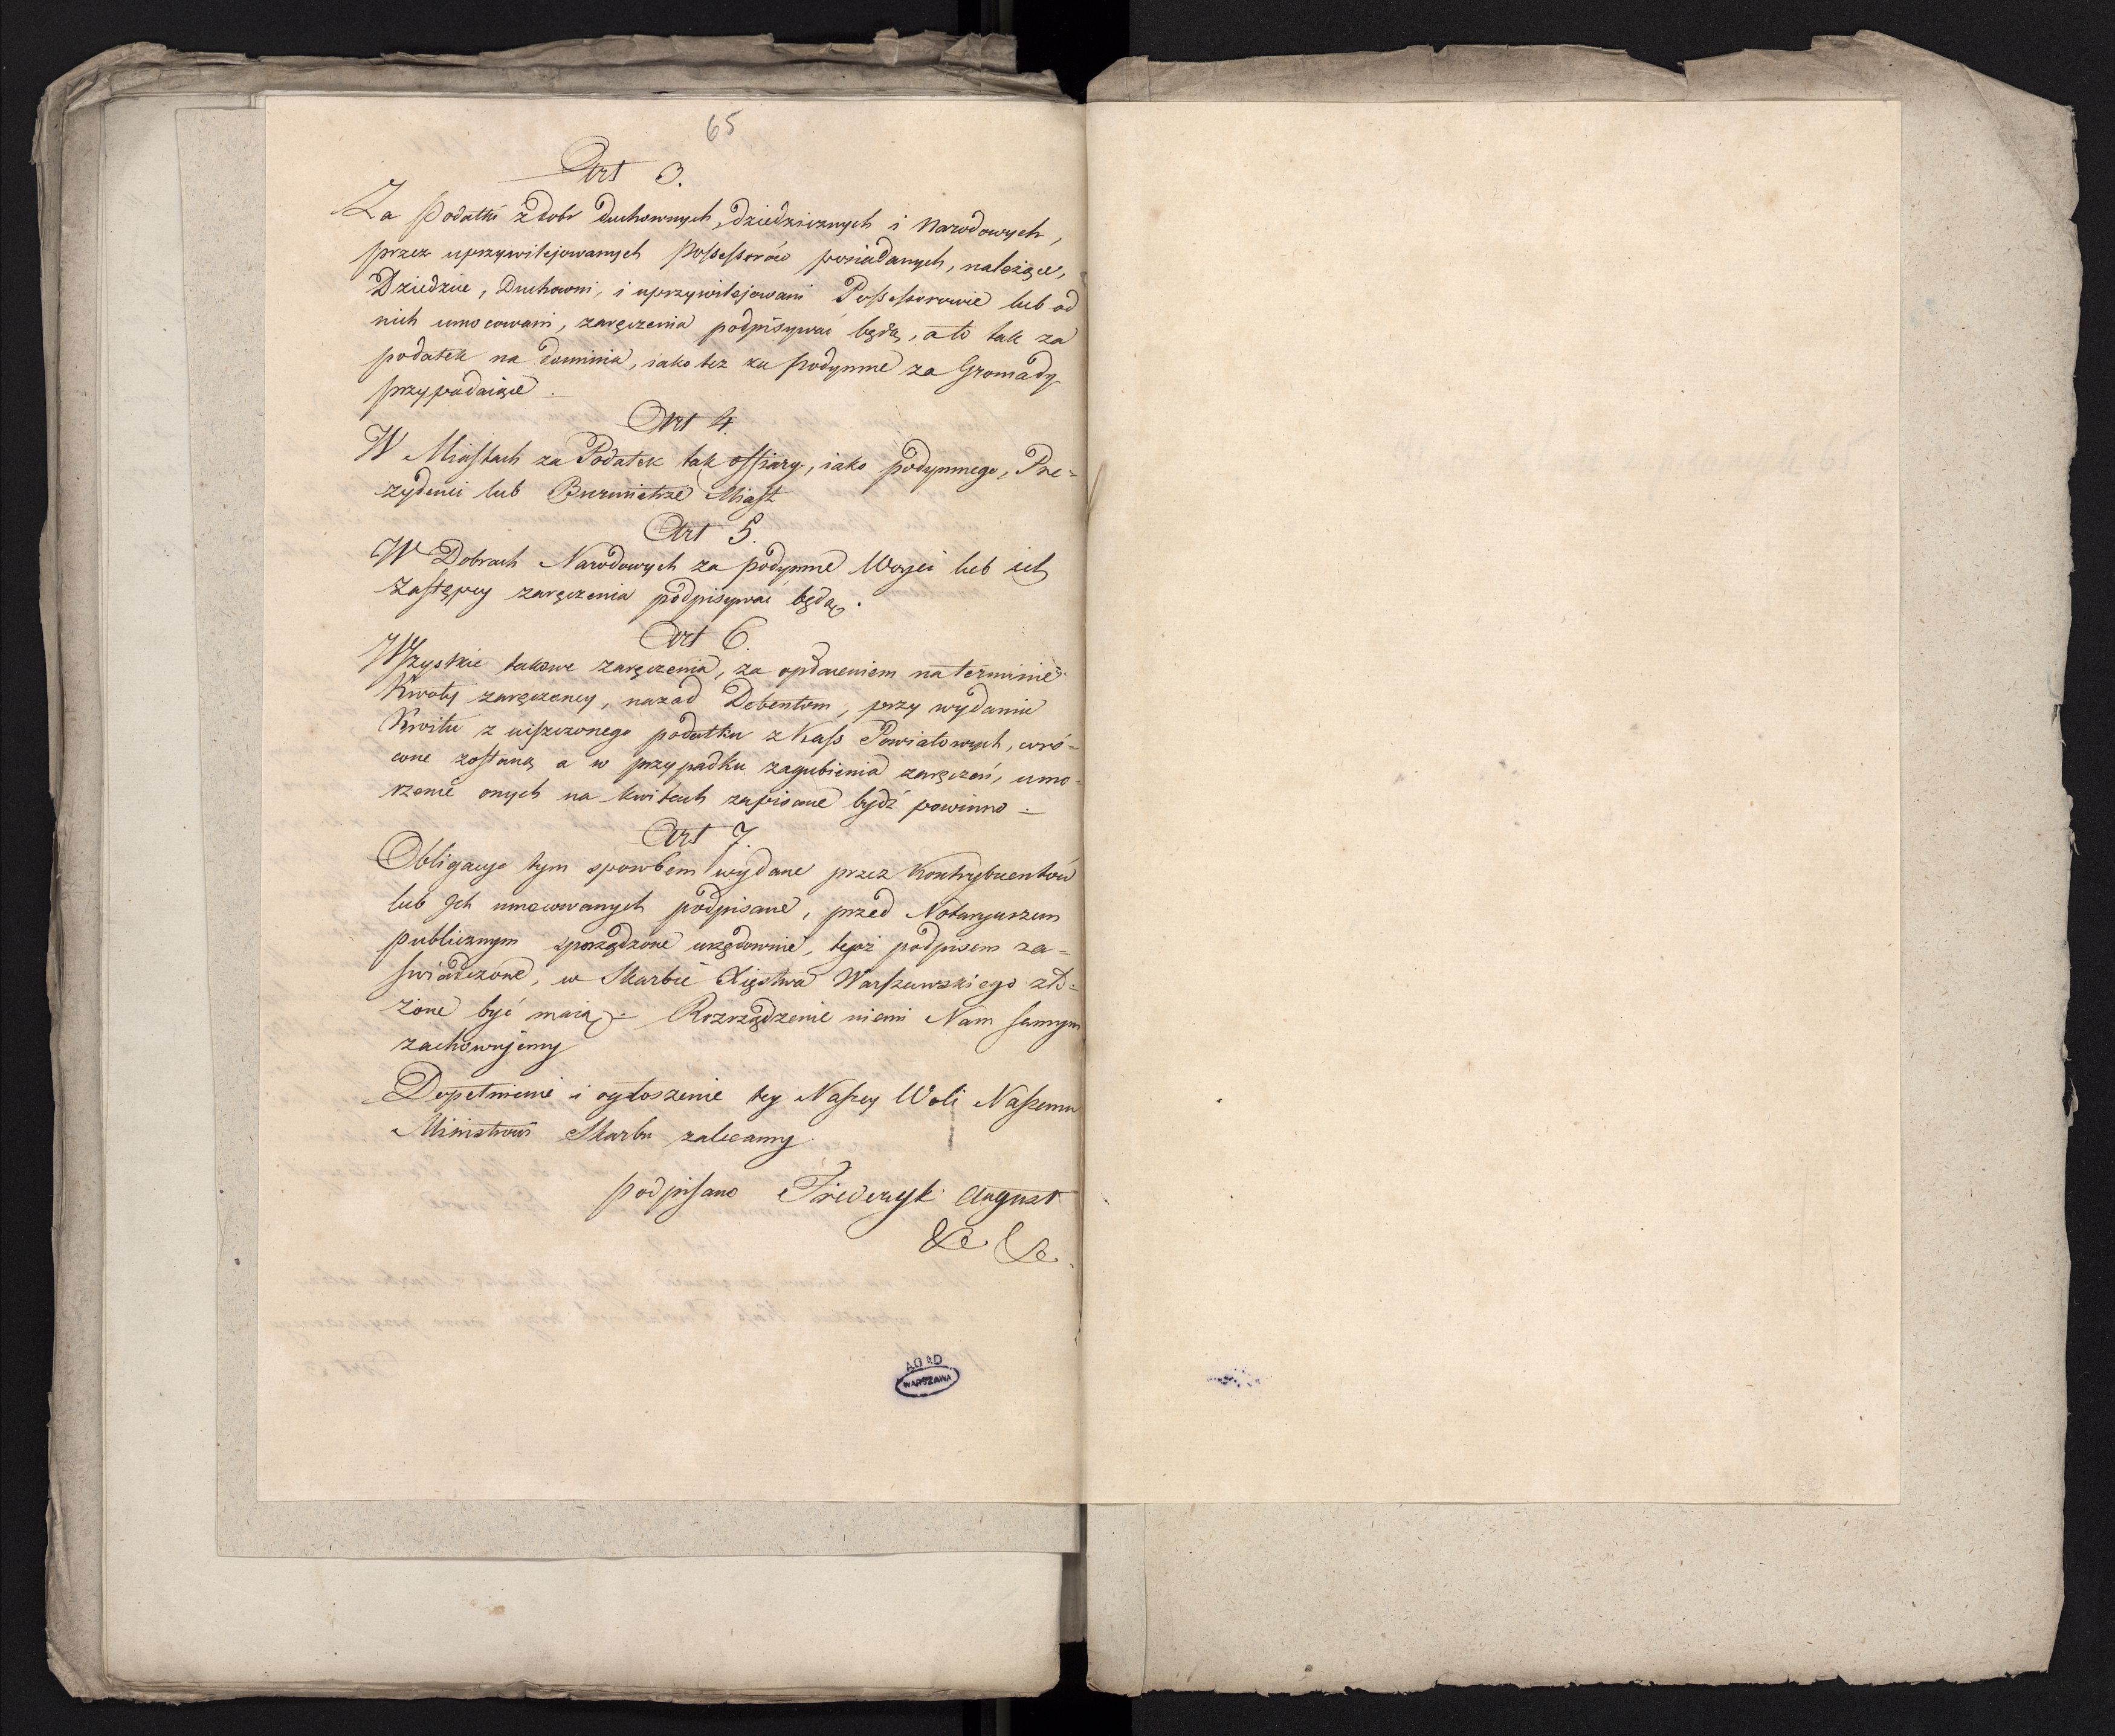 65
Art 3.
Za Podatki z dobr duchownych, dziedzicznych i Narodowych,
przez uprzywilejowanych Possessorów posiadanych, należące,
Dziedzice, Duchowni, i uprzywilejowani Possessorowie lub od
nich umocowani, zaręczenia podpisywać będą, a to tak za
podatek na dominia, iako też za podymne za Gromady
przypadaiące.
Art 4.
W Miastach za Podatek tak offiary, iako podymnego, Pre=
zydenci lub Burmistrze Miast
Art 5.
W Dobrach Narodowych za podymne Woyci lub ich
Zastępcy zaręczenia podpisywać będą.
Art 6.
Wszystkie takowe zaręczenia, za opłaceniem na terminie
Kwoty zaręczoney, nazad Debentom, przy wydaniu
Kwitu z uiszczonego podatku z Kass Powiatowych, wró=
cone zostaną a w przypadku zagubienia zaręczeń, umo=
rzenie onych na kwitach zapisane bydź powinno.
Art 7.
Obligacye tym sposobem wydane przez Kontrybuentów
lub Ich umocowanych podpisane, przed Notaryuszem
publicznym sporządzone urzędownie, tegoż podpisem za=
świadczone, w Skarbie Xięstwa Warszawskiego zło=
żone być maią. Rozrządzenie niemi Nam samym
zachowujemy
Dopełnienie i ogłoszenie tey Naszey Woli Naszemu
Ministrowi Skarbu zalecamy.
podpisano Fryderyk August
&c. &c.
AGAD
WARSZAWA